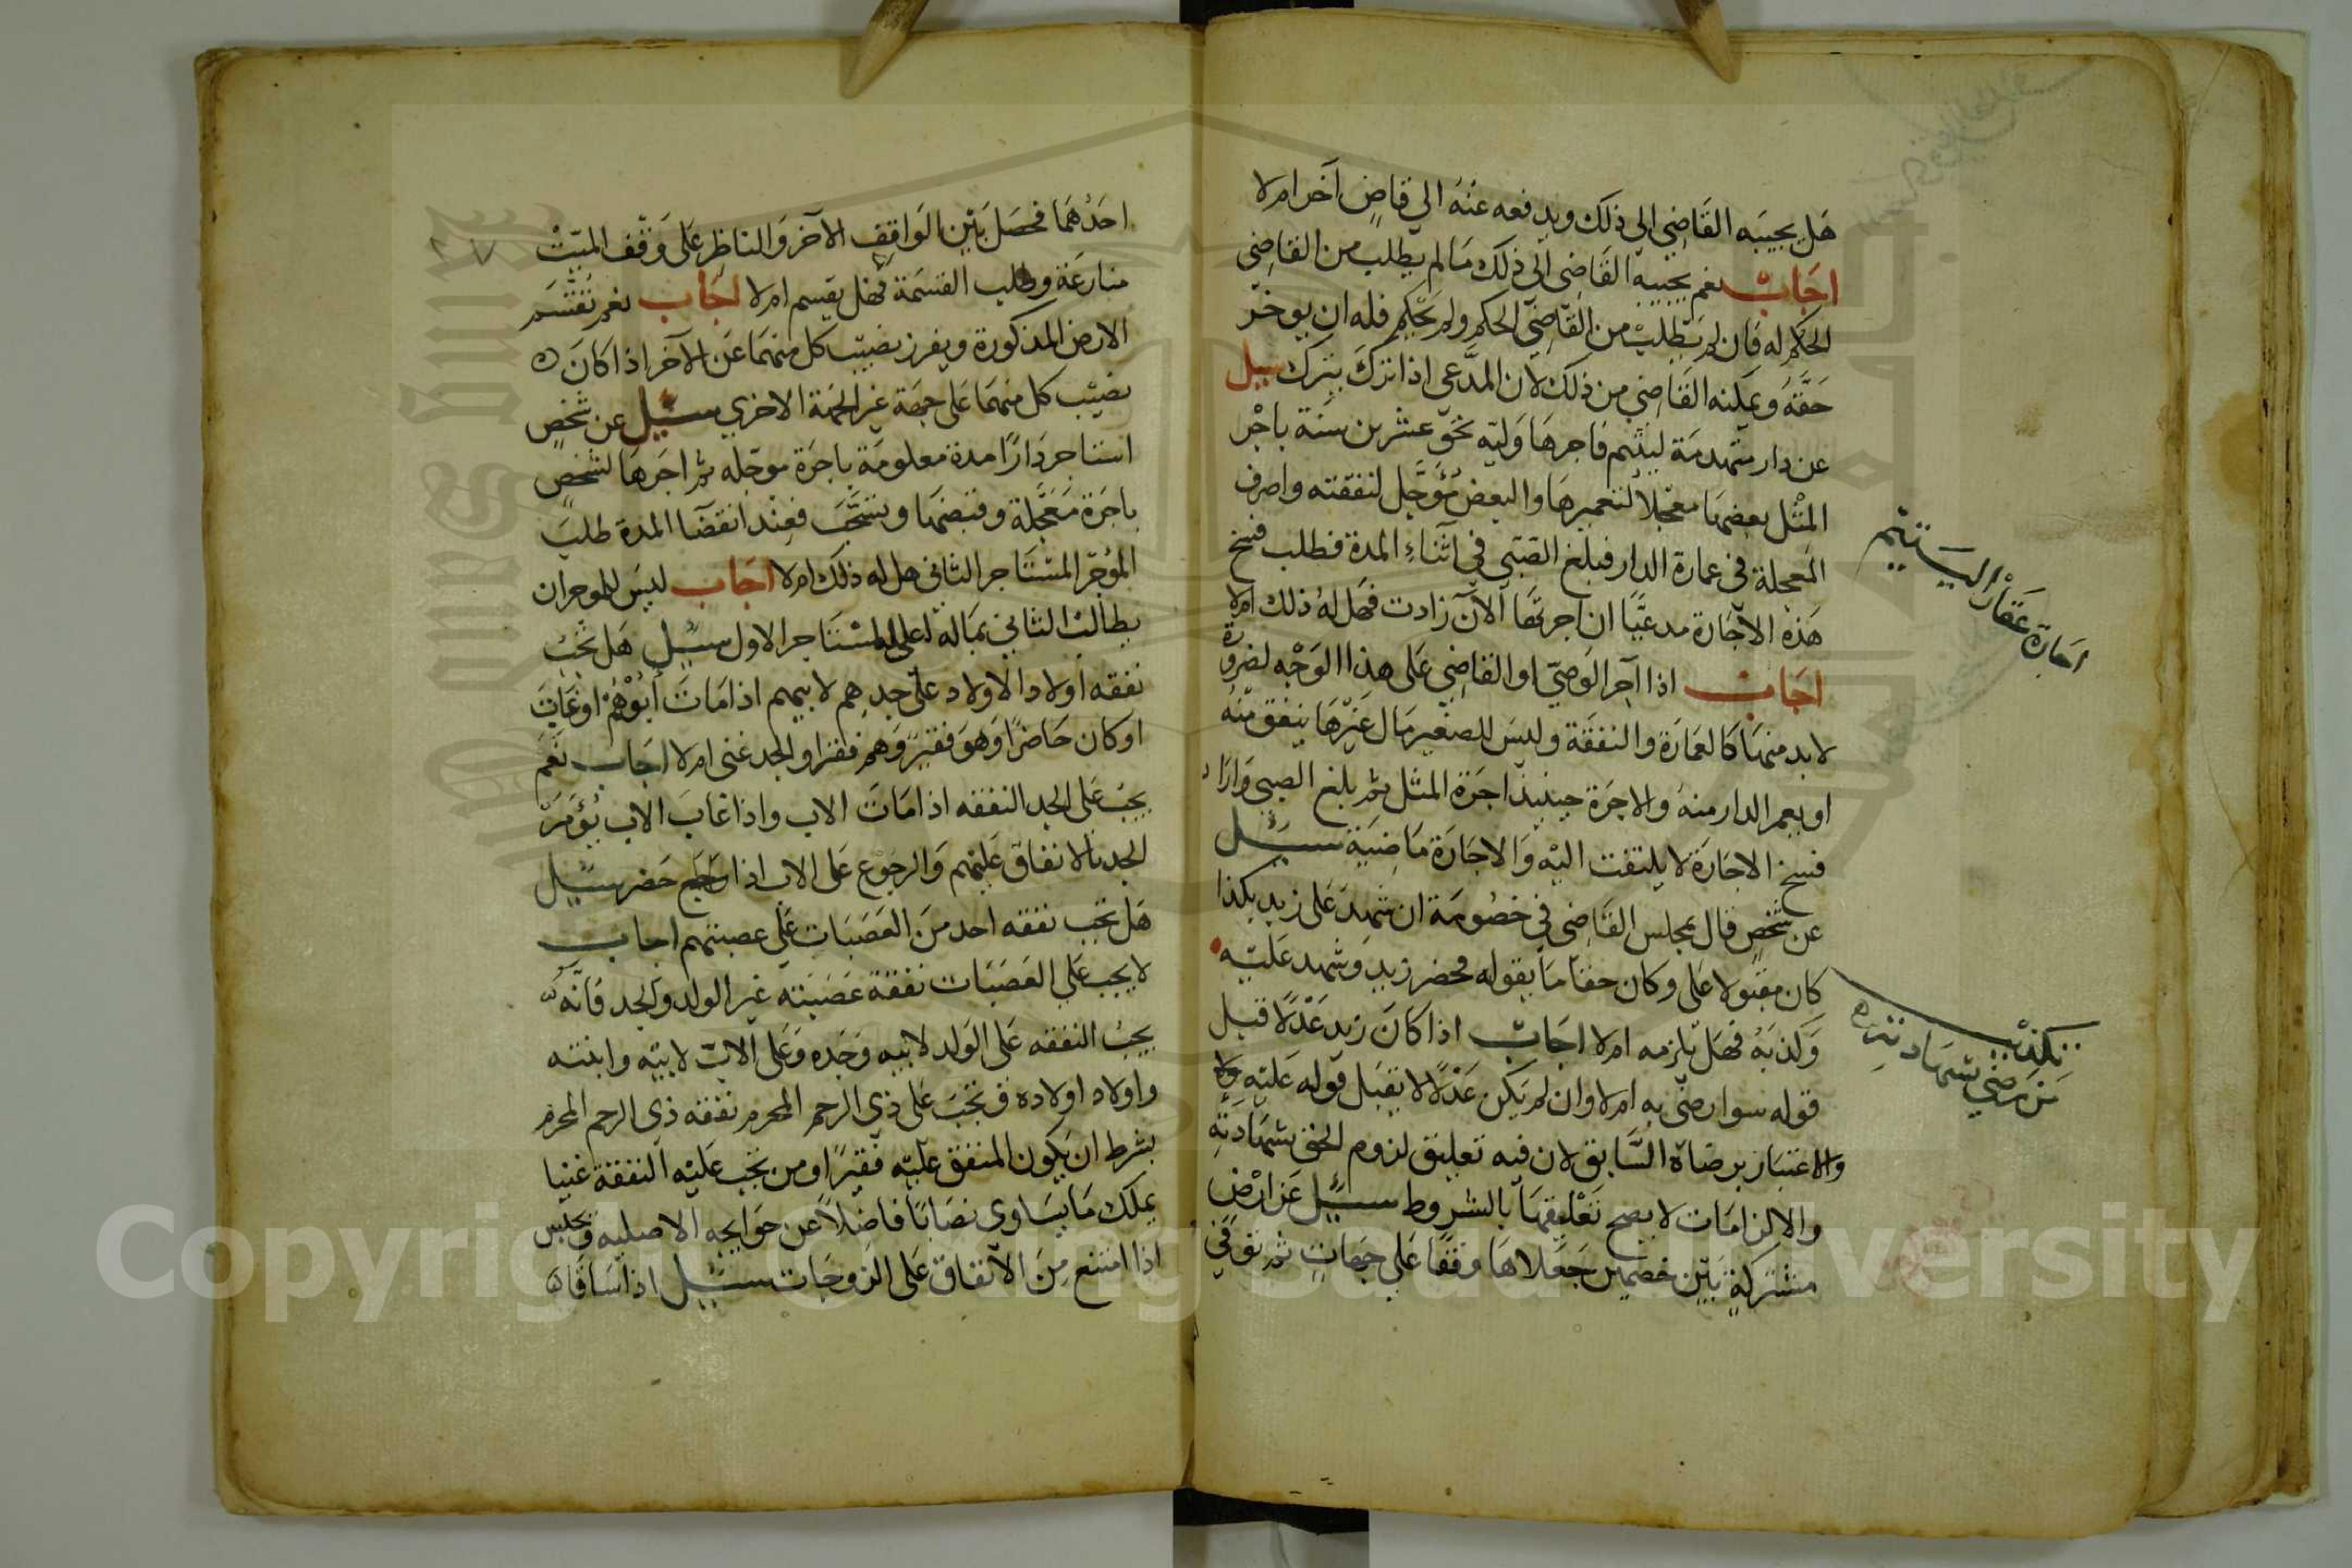 هل يجيبه القاضي الى ذلك ويدفعه عنه الي قاض آخر ام لا
اجاب نعم يجيبه القاضي الى ذلك ما لم يطلب من القاضي
الحكم له فان لم يطلب من القاضي الحكم ولم يحكم فله ان يوخر
حقه ويمكنه القاضي من ذلك لان المدعي اذا ترك يترك سيل
عن دار متهدمة ليتيم فاجرها وليه نحو عشرين سنة باجر
المثل بعضها معجلا لتعميرها والبعض مؤجل لنفقته واصرف
المعجلة في عمارة الدار فبلغ الصبي في اثناء المدة فطلب فسخ
هذه الاجارة مدعيا ان اجرتها الآن زادت فهل له ذلك ام لا
اجاب اذا آجر الوصي او القاضي على هذا الوجه لضرورة
لا بد منها كالعمارة والنفقة وليس للصغير مال غيرها ينفق منه
او يعمر الدار منه والاجرة حينيذ اجرة المثل ثم بلغ الصبي واراد
فسخ الاجارة لا يلتفت اليه والاجارة ماضية سيل
عن شخص قال بمجلس القاضي في خصومة ان شهد على زيد بكذا
كان مقبولا على وكان حقا ما يقوله فحضر زيد وشهد عليه
وكذبه فهل يلزمه ام لا اجاب اذا كان زيد عدلا قبل
قوله سوا رضي به ام لا وان لم يكن عدلا لا يقبل قوله عليه ولا
والاعتبار برضاه السابق لان فيه تعليق لزوم الحق بشهادته
والالزامات لا يصح تعليقها بالشروط سيل عن ارض
مشتركة بين خصمين جعلاها وقفا على جهات ثم توفي
اجارة عقار اليتيم
تكذيب
من رضي بشهادته
احدهما فحصل بين الواقف الآخر والناظر على وقف الميت
منازعة وطلب القسمة فهل يقسم ام لا اجاب نعم تقسم
الارض المذكورة ويفرز نصيب كل منهما عن الآخر اذا كان
نصيب كل منهما على جهة غير الجهة الاخري سيل عن شخص
استاجر دارا مدة معلومة باجرة موجله ثم اجرها لشخص
باجرة معجلة وقبضها وتسحب فعند انقضا المدة طلب
المؤجر المستاجر الثاني هل له ذلك ام لا اجاب ليس للموجر ان
يطالب الثاني بماله على المستاجر الاول سيل هل تجب
نفقه اولاد الاولاد على جدهم لابيهم اذا مات ابوهم او غاب
او كان حاضرا وهو فقير وهم فقرا والجد غني ام لا اجاب نعم
يجب على الجد النفقه اذا مات الاب واذا غاب الاب يؤمر
الجد بالانفاق عليهم والرجوع على الاب اذا حضر سيل
هل تجب نفقه احد من العصبات على عصبتهم اجاب
لا يجب على العصبات نفقة عصبته غير الولد والجد فانه
يجب النفقه على الولد لابيه وجده وعلى الاب لابيه وابنته
واولاد اولاده وتجب على ذي الرحم المحرم نفقه ذي الرحم المحرم
بشرط ان يكون المنفق عليه فقيرا ومن تجب عليه النفقة غنيا
يملك ما يساوي نصابا فاضلا عن حوايجه الاصليه ويحبس
اذا امتنع من الانفاق على الزوجات سيل اذا ساقاه
Copyright © King Saud University